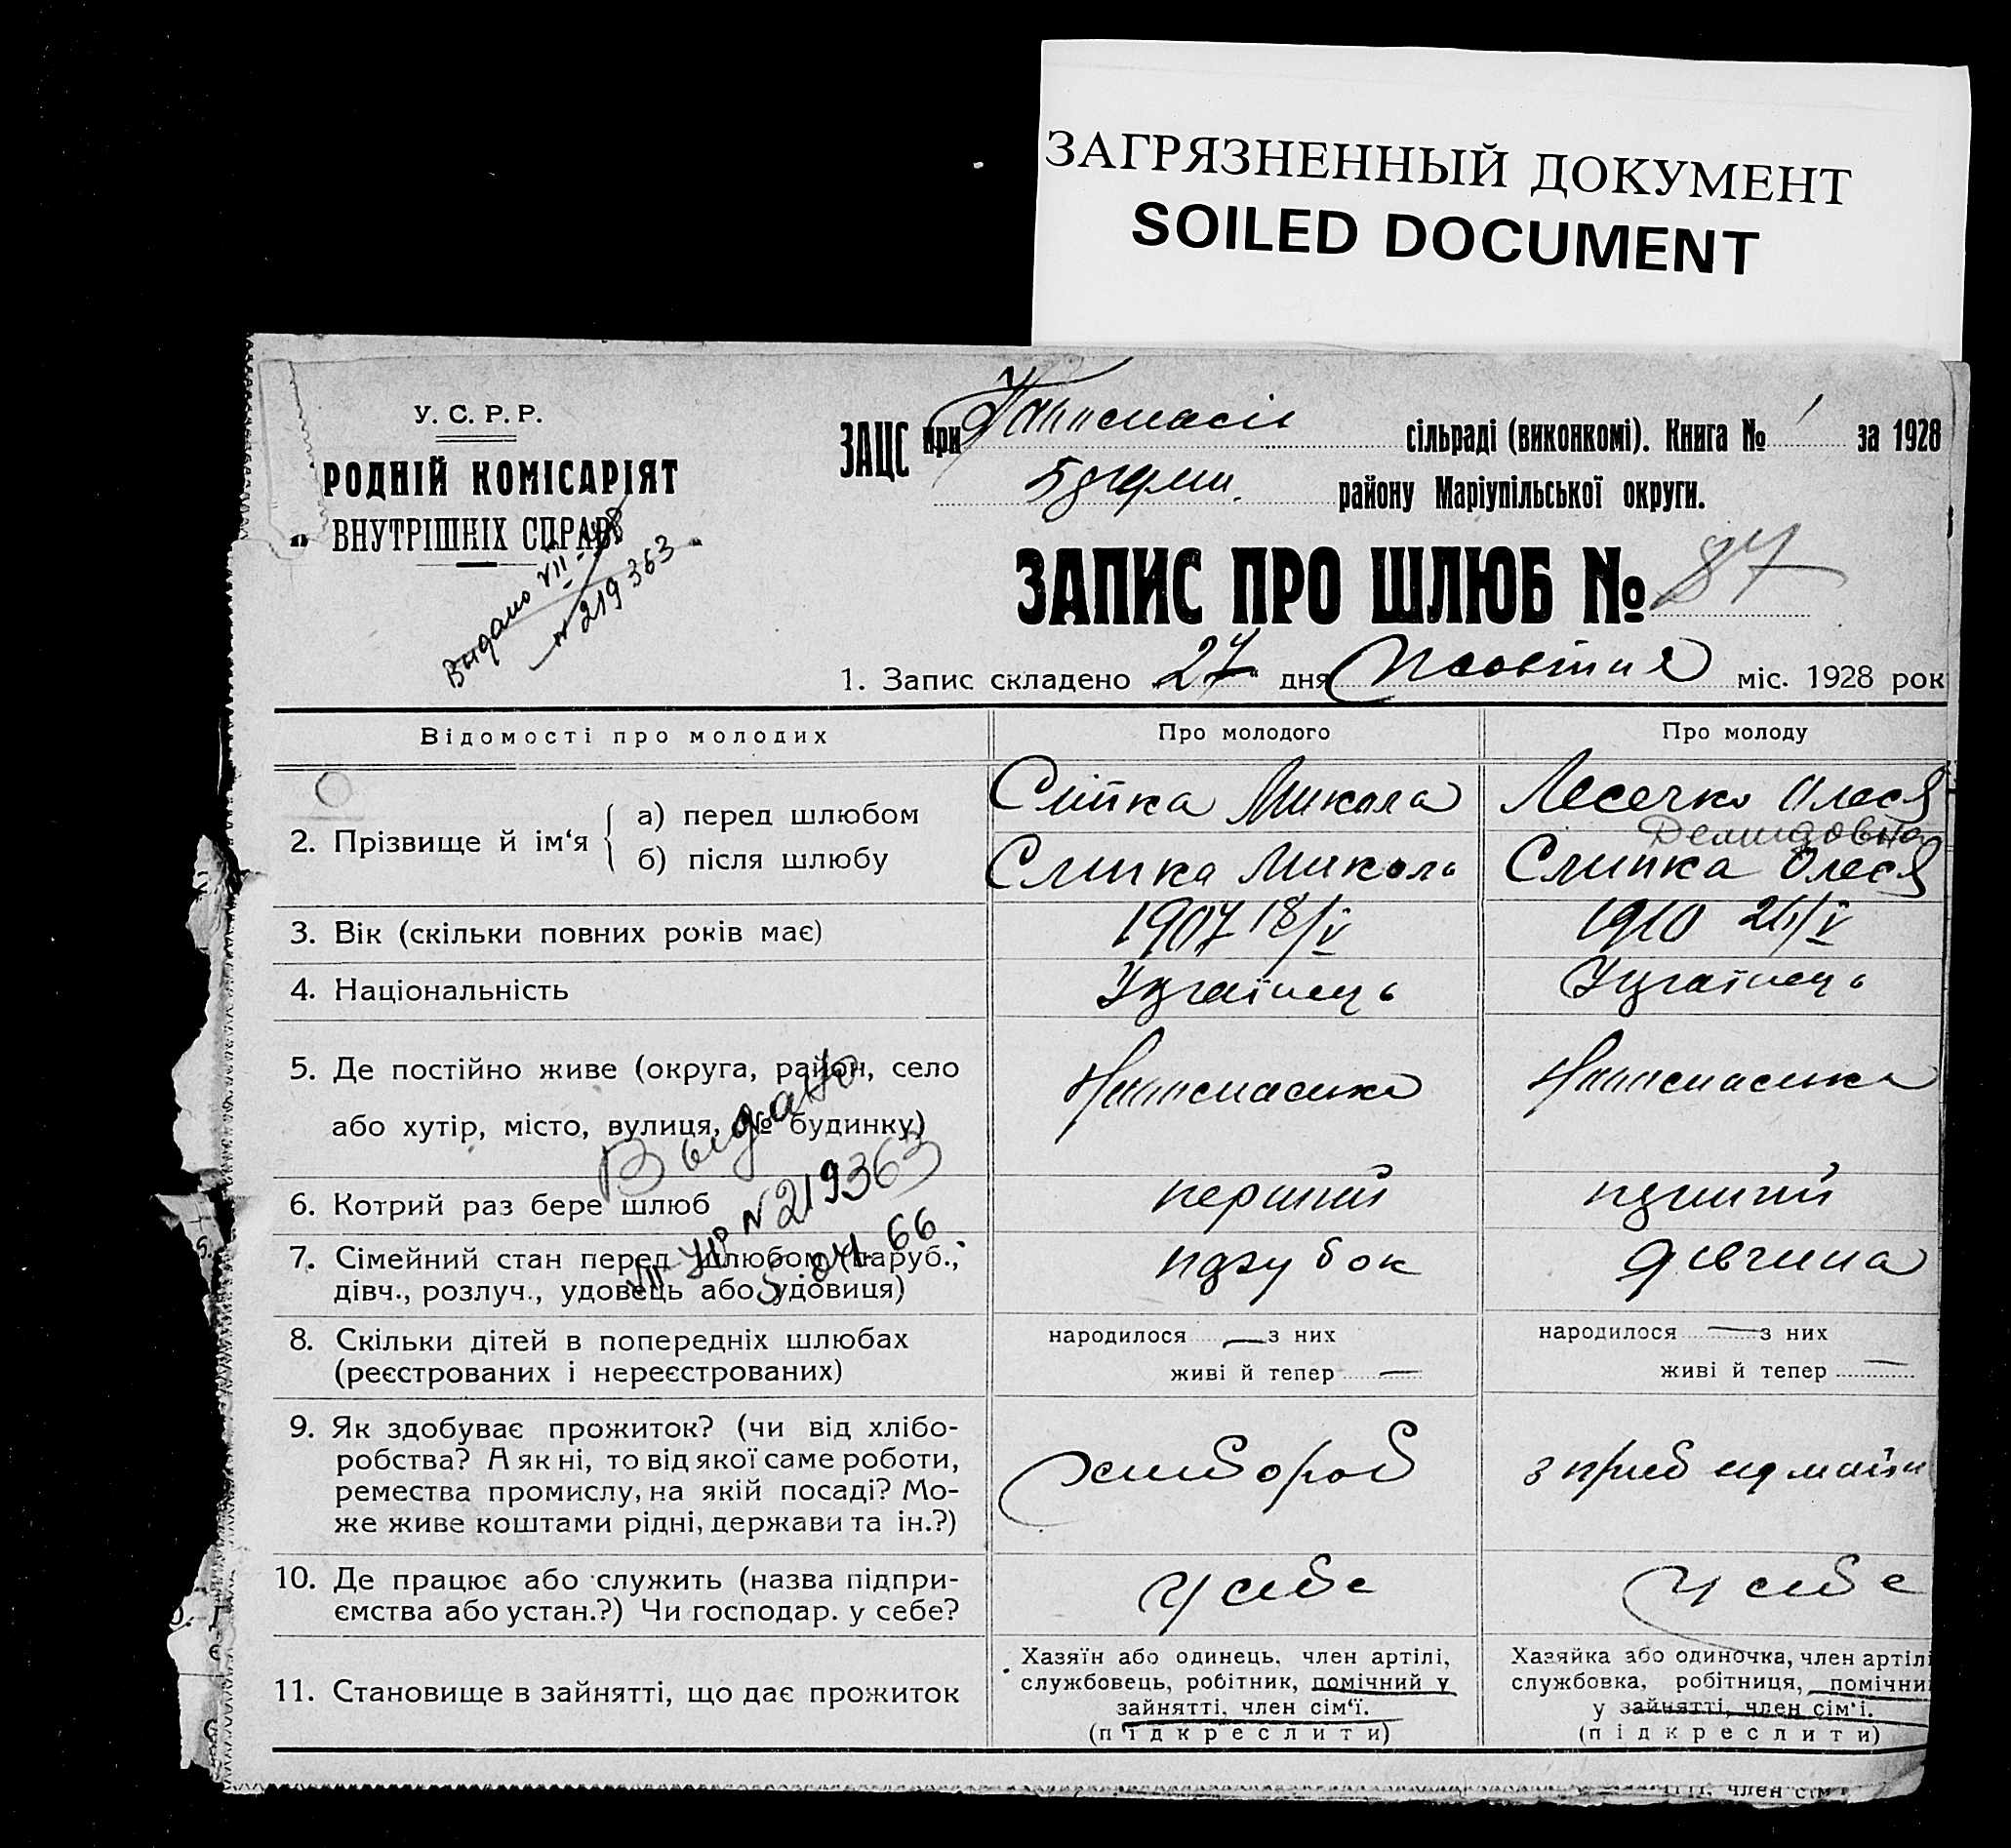 ЗАГРЯЗНЕННЫЙ ДОКУМЕНТ
SOILED DOCUMENT
У. С. Р. Р.
РОДНІЙ КОМІСАРІЯТ
ВНУТРІШНІХ СПРАВ
Видано VII
N 219363
ЗАЦС при сільраді (виконкомі). Книга № 1 за 1928
району Маріупільської округи.
ЗАПИС ПРО ШЛЮБ № 87
1. Запис складено 27 дня Жовтня міс. 1928 рок
Відомості про молодих
Про молодого
Про молоду
2. Прізвище й ім'я
а) перед шлюбом
Сліпка Микола
Лесечко Олеся
Демидовна
б) після шлюбу
Слипка Микола
Слипка Олеся
3. Вік (скільки повних років має)
1907 18/V
1910 /V
4. Національність
Українець
Українець
5. Де постійно живе (округа, район, село
або хутір, місто, вулиця, № будинку)
Выдано
N 219363
66
6. Котрий раз бере шлюб
перший
перший
7. Сімейний стан перед шлюбом (паруб.,
дівч., розлуч., удовець або удовиця)
парубок
дівчина
8. Скільки дітей в попередніх шлюбах
(реєстрованих і нереєстрованих)
народилося — з них
живі й тепер —
народилося — з них
живі й тепер —
9. Як здобуває прожиток? (чи від хлібо-
робства? А як ні, то від якої саме роботи,
ремества промислу, на якій посаді? Мо-
же живе коштами рідні, держави та ін.?)
хлибороб
10. Де працює або служить (назва підпри-
ємства або устан.?) Чи господар. у себе?
у себе
у себе
11. Становище в зайнятті, що дає прожиток
Хазяїн або одинець, член артілі,
службовець, робітник, помічний у
зайнятті, член сім'ї.
(підкреслити)
Хазяйка або одиночка, член артілі
службовка, робітниця, помічни
у зайнятті, член сім'ї.
(підкреслити)
член сім